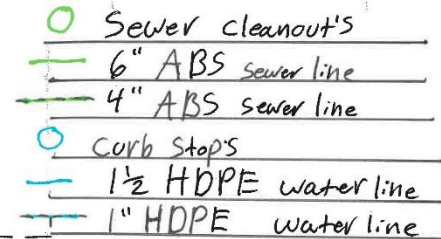 Sewer Cleanout's
6" ABS sewer line
4" ABS sewer line
Curb Stop's
1½ HDPE water line
1" HDPE water line